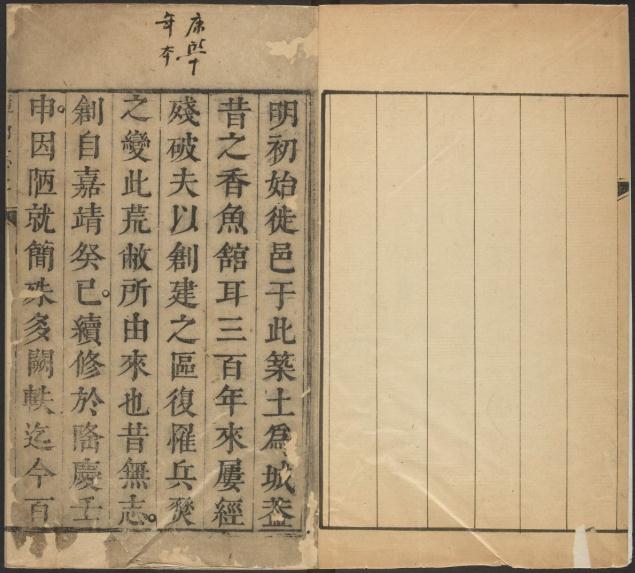 康熙
年本
明初始徙邑于此築土為城蓋
昔之香魚舘耳三百年來屢經
殘破夫以創建之區復罹兵燹
之變此荒敝所由來也昔無志。
創自嘉靖癸已。續修於隆慶壬
申。因陋就簡殊多闕軼迄今百